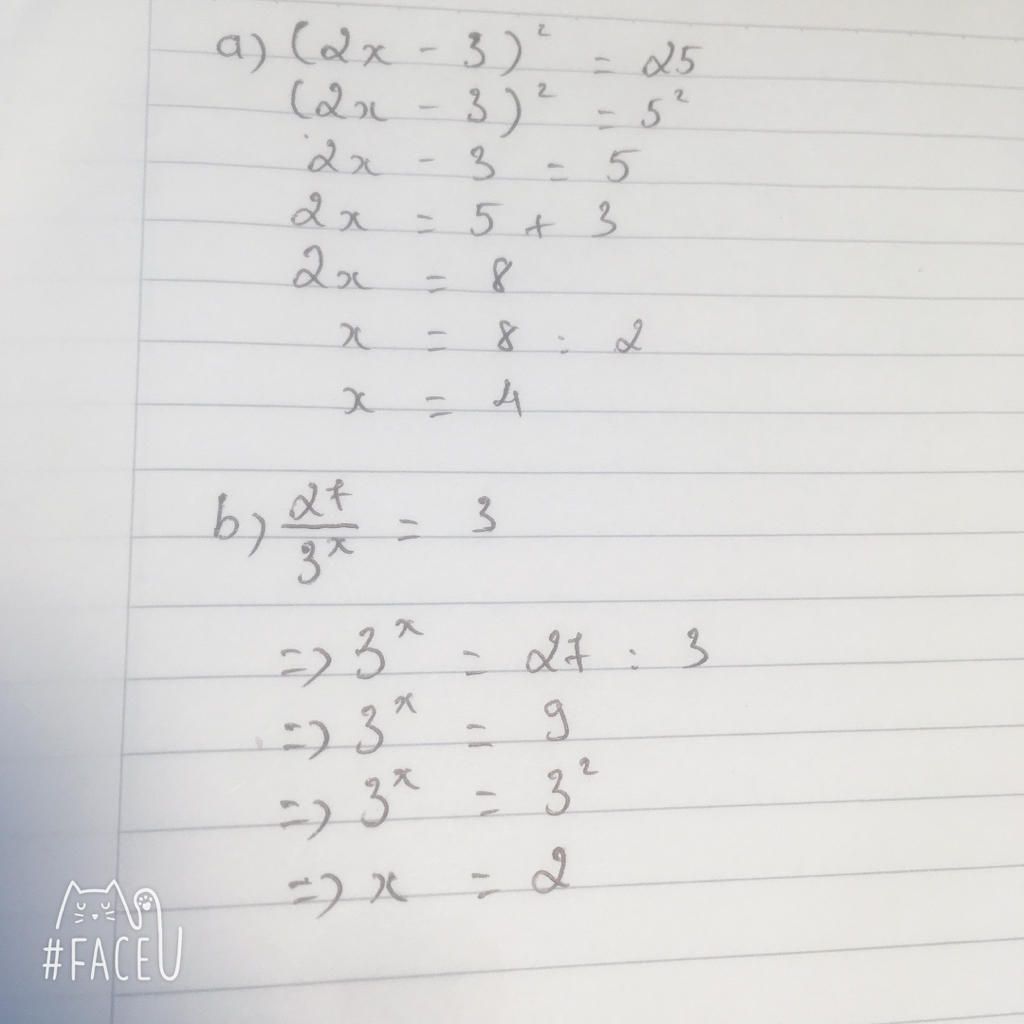 a) (2x - 3)² = 25
(2x - 3)² = 5²
2x - 3 = 5
2x = 5 + 3
2x = 8
x = 8 : 2
x = 4
b) 27/3ˣ = 3
=> 3ˣ = 27 : 3
=> 3ˣ = 9
=> 3ˣ = 3²
=> x = 2
#FACEU